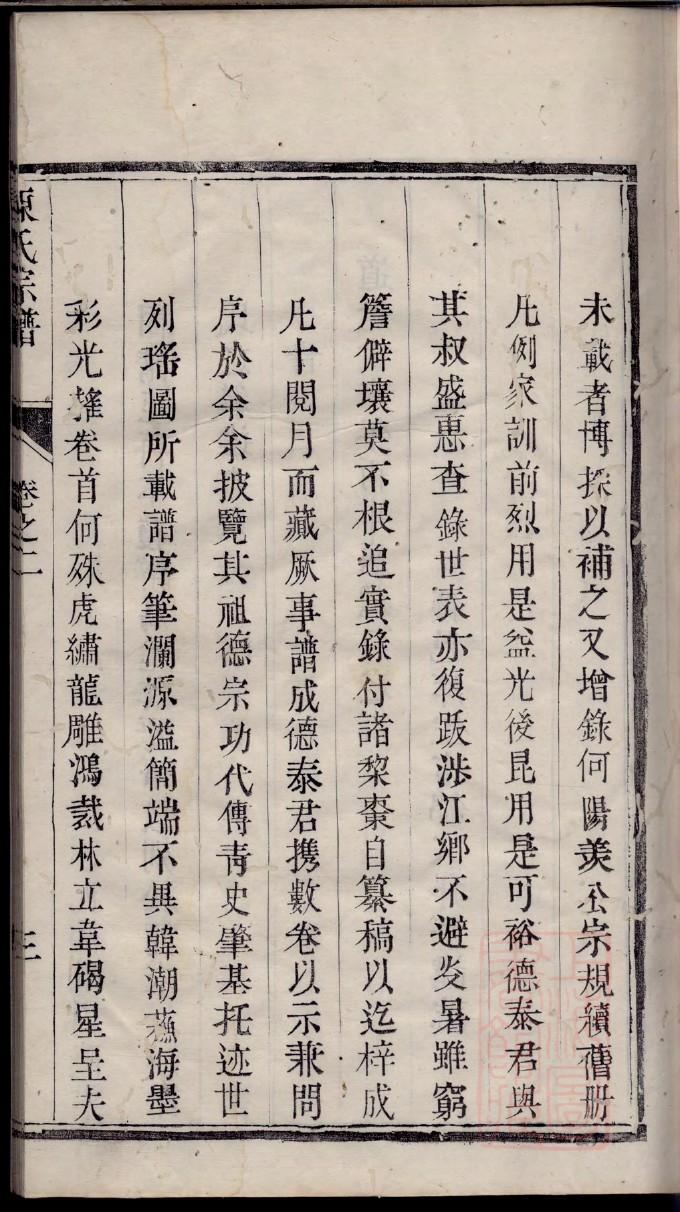 未載者博採以補之又增錄何陽羨公宗規續舊册
凡例家訓前烈用是益光後昆用是可裕德泰君與
其叔盛惠查錄世表亦復跋涉江鄉不避炎暑雖窮
簷僻壤莫不根追實錄付諸棃棗自纂稿以迄梓成
凡十閱月而藏厥事譜成德泰君携數卷以示兼問
序於余余披覽其祖德宗功代傳靑史肇基托迹世
列瑶圖所載譜序筆瀾源溢簡端不異韓潮蘓海墨
彩光搖卷首何殊虎繡龍雕鴻裁林立韋碣星呈夫
氏宗譜
卷之二
三